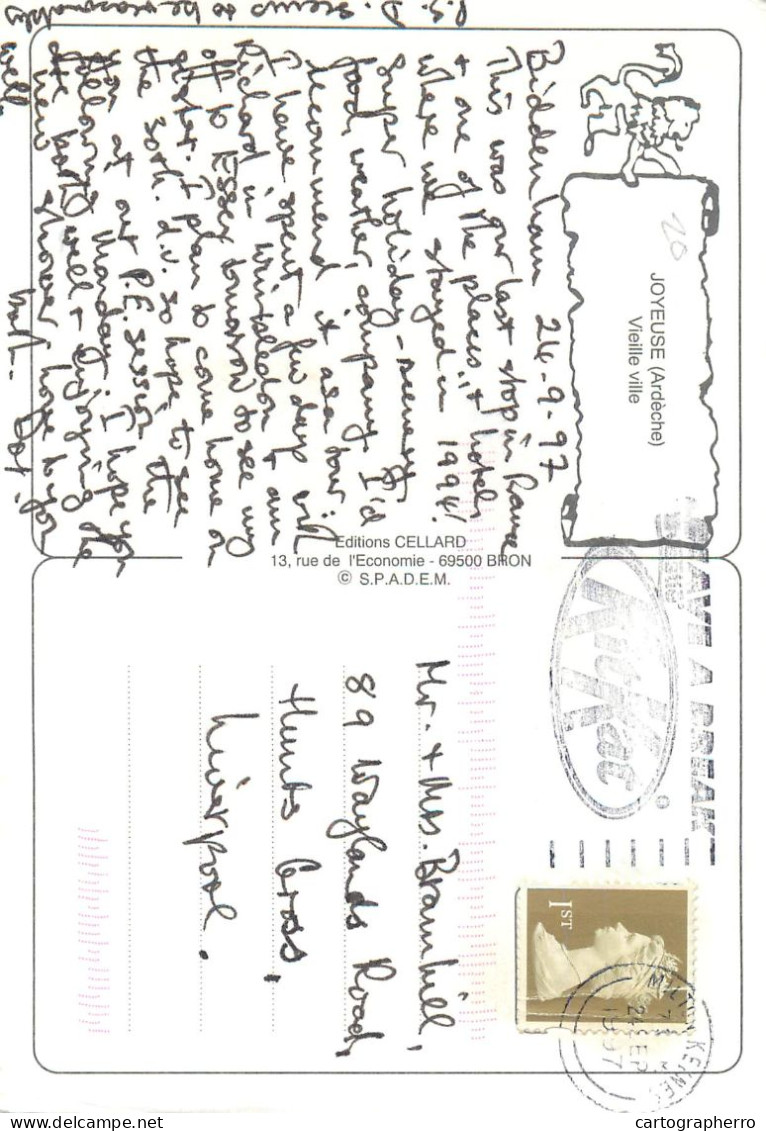 JOYEUSE (Ardèche)
Vieille ville
20
Biddenham 24-9-97
This was our last stop in France
+ one of the places + hotels
where we stayed in 1994!
Super holiday - scenery,
food, weather, company. I'd
recommend it as a tour.
I have spent a few days with
Richard in Wimbledon + am
off to Essex tomorrow to see my
sister. I plan to come home on
the 30th. d.v. so hope to see
you at our P.E. session the
following Monday. I hope you
are both well + enjoying the
new shower, hope to you
Dot.
P.S. D. seems to be reasonably
well.
Editions CELLARD
13, rue de l'Economie - 69500 BRON
© S.P.A.D.E.M.
HAVE A BREAK
KitKat
MILTON KEYNES
24 SEP
1997
1ST
Mr. + Mrs. Bramhill,
89 Waylands Road,
Hunts Cross,
Liverpool.
cartographerro